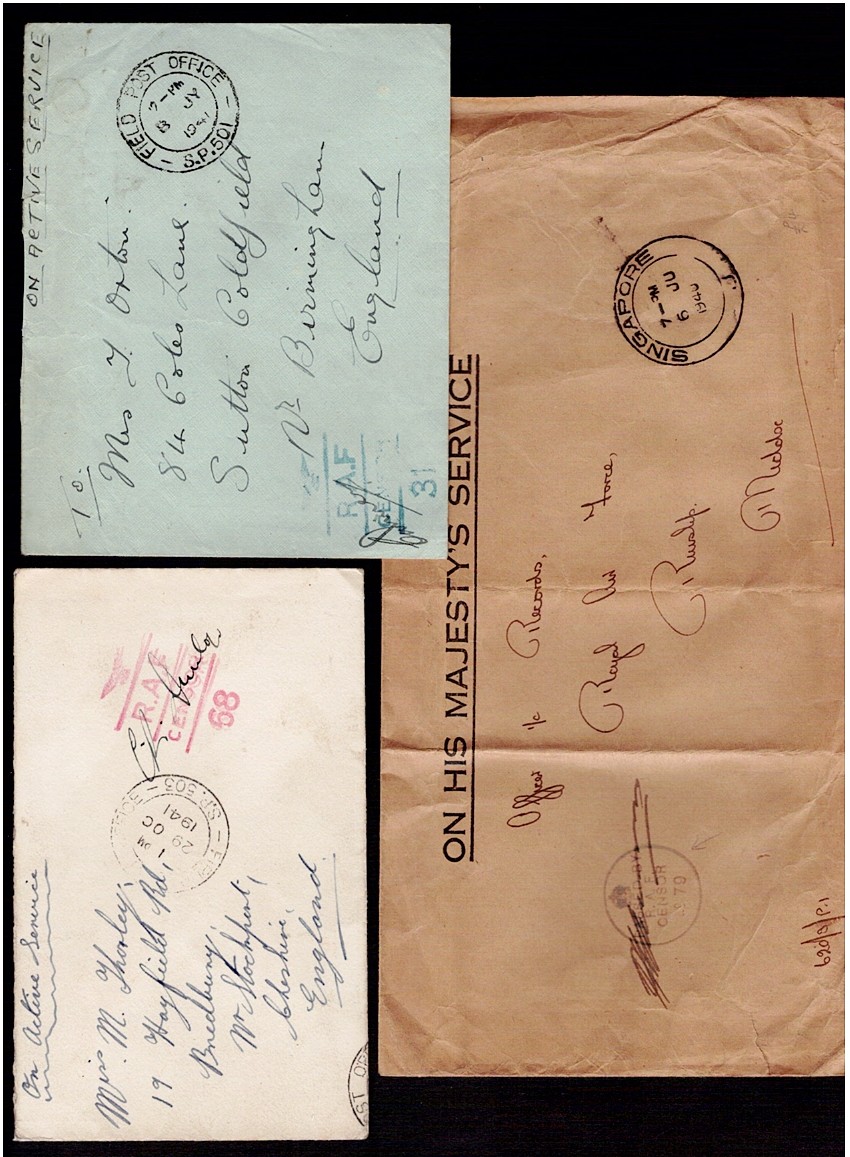 ON ACTIVE SERVICE
FIELD POST OFFICE
JY
1941
S.P.501
To.
Mrs
84 Coles Lane.
Sutton Coldfield
Nr Birmingham
England
R.A.F
CENSOR
31
On Active Service
Miss M. Thorley,
19 Hayfield Rd,
Bredbury,
Nr Stockport,
Cheshire,
England
1 PM
29 OC
1941
S.P.503
R.A.F
CENSOR
68
ST OFF
ON HIS MAJESTY'S SERVICE
SINGAPORE
7-PM
6 JU
1940
Officer i/c Records,
Royal Air Force,
Ruislip.
Middx
BY
R.A.F.
CENSOR
No 79